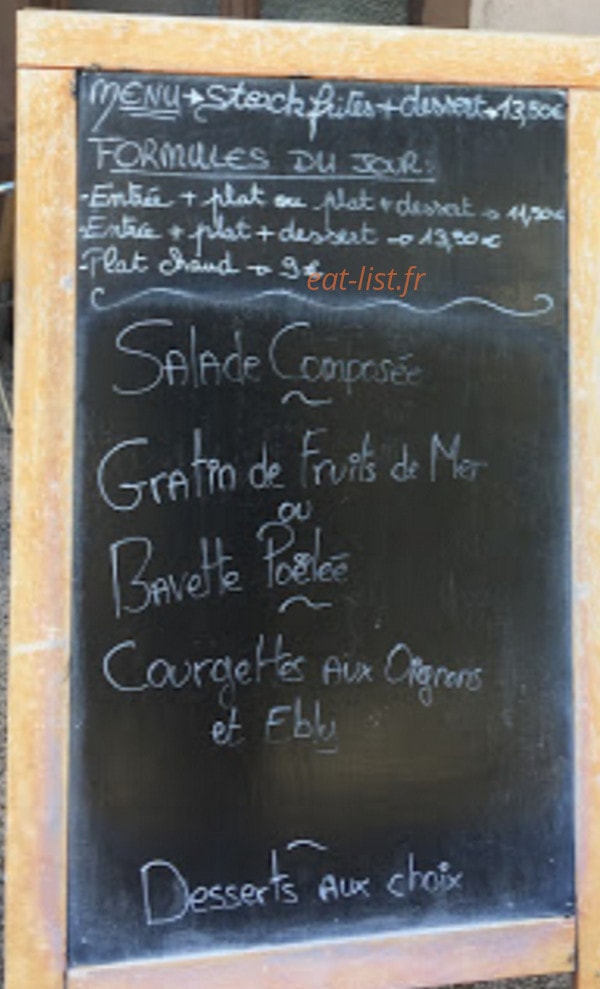 MENU → Steack frites + dessert → 13,50€
FORMULES DU JOUR:
- Entrée + plat ou plat + dessert → 11,50€
- Entrée + plat + dessert → 13,50€
- Plat Chaud → 9€
eat-list.fr
Salade Composée
~
Gratin de Fruits de Mer
ou
Bavette Poêlée
~
Courgettes aux Oignons
et Ebly
~
Desserts aux choix